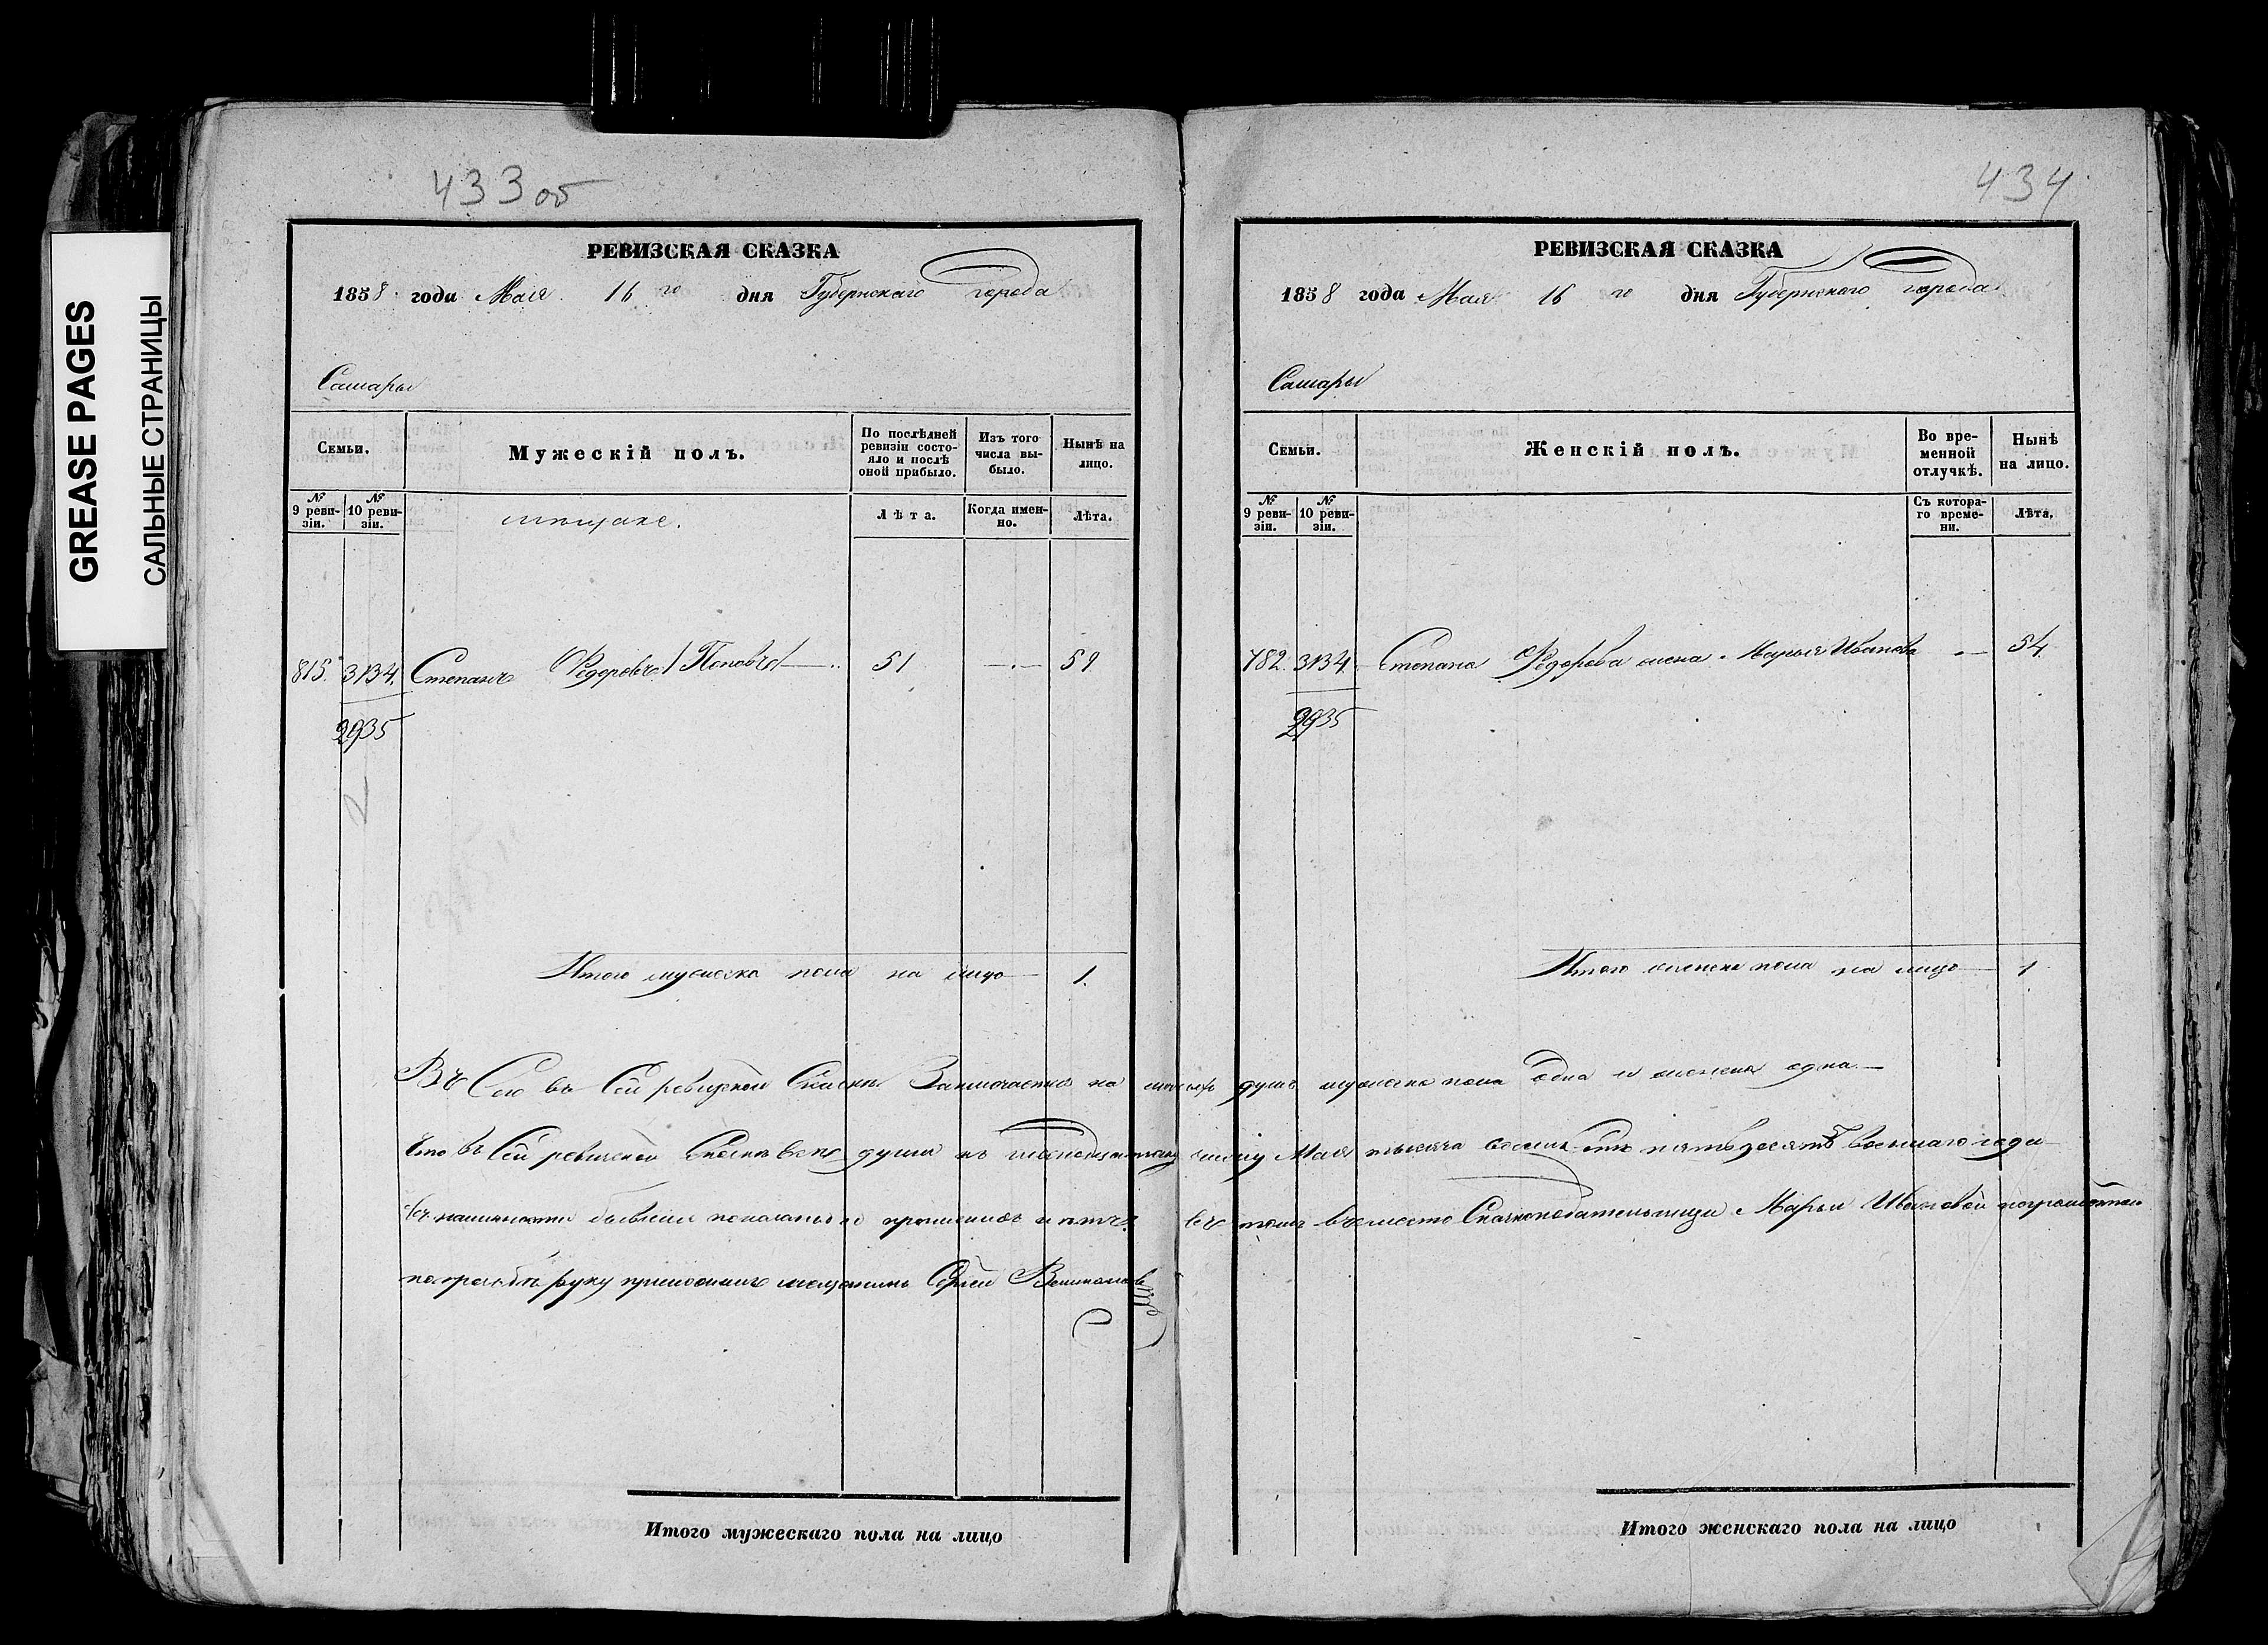 GREASE PAGES
САЛЬНЫЕ СТРАНИЦЫ
433 об
РЕВИЗСКАЯ СКАЗКА
1858 года Мая 16 го дня Губернскаго города
Самары
Семьи.
Мужескій полъ.
По послѣдней ревизіи состояло и послѣ оной прибыло.
Изъ того числа выбыло.
Нынѣ на лицо.
№ 9 ревизіи.
№ 10 ревизіи.
мещане.
Лѣта.
Когда именно.
Лѣта.
815. 3134. Степанъ Федоровъ / Поповъ / 51 — 59
2935
Итого мужеска пола на лицо — 1.
434
РЕВИЗСКАЯ СКАЗКА
1858 года Мая 16 го дня Губернскаго города
Самары
Семьи.
Женскій полъ.
Во временной отлучкѣ.
Нынѣ на лицо.
№ 9 ревизіи.
№ 10 ревизіи.
Съ котораго времени.
Лѣта.
782. 3134. Степана Федорова жена Марья Иванова — 54.
2935
Итого женска пола на лицо — 1
въ сей ревизской Сказки Заключается на душъ мужеска пола одна и женска одна —
Что въ Сей ревизской Сказке всѣ души къ числу Мая тысяча восемь сотъ пятьдесятъ восьмаго года
въ бывшие показаны и въ томъ вместо Сказкоподательницы Марьи Ивановой
руку приложилъ мещанинъ Сергей
Итого мужескаго пола на лицо
Итого женскаго пола на лицо